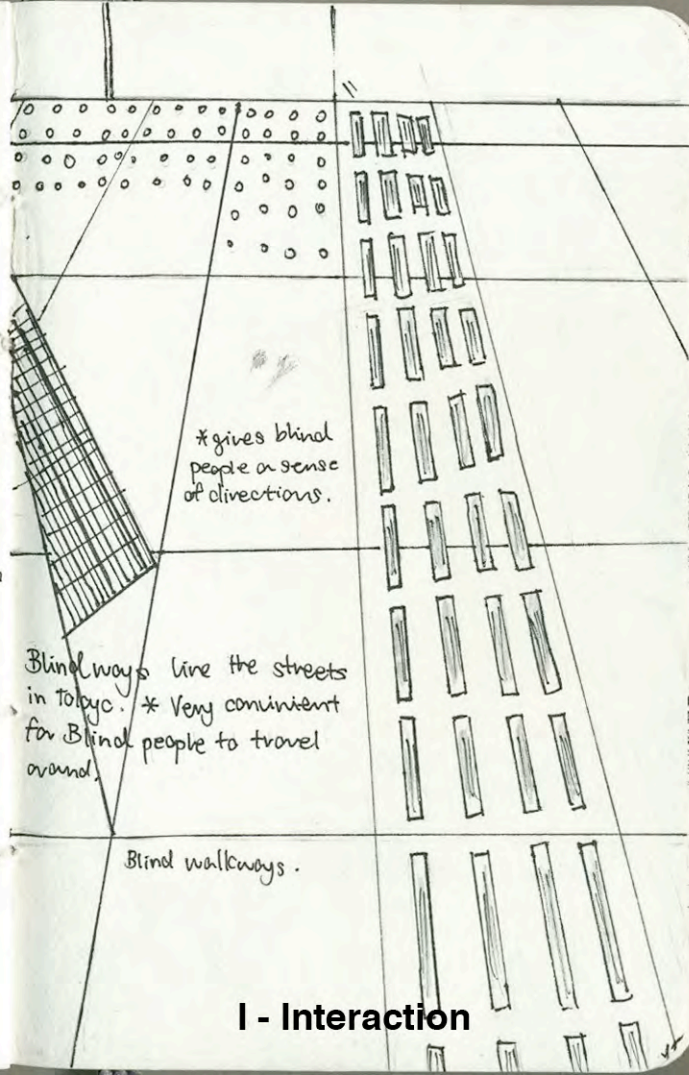 *gives blind
people a sense
of directions.
Blindways line the streets
in Tokyo. * Very convinient
for Blind people to travel
around.
Blind walkways.
I - Interaction